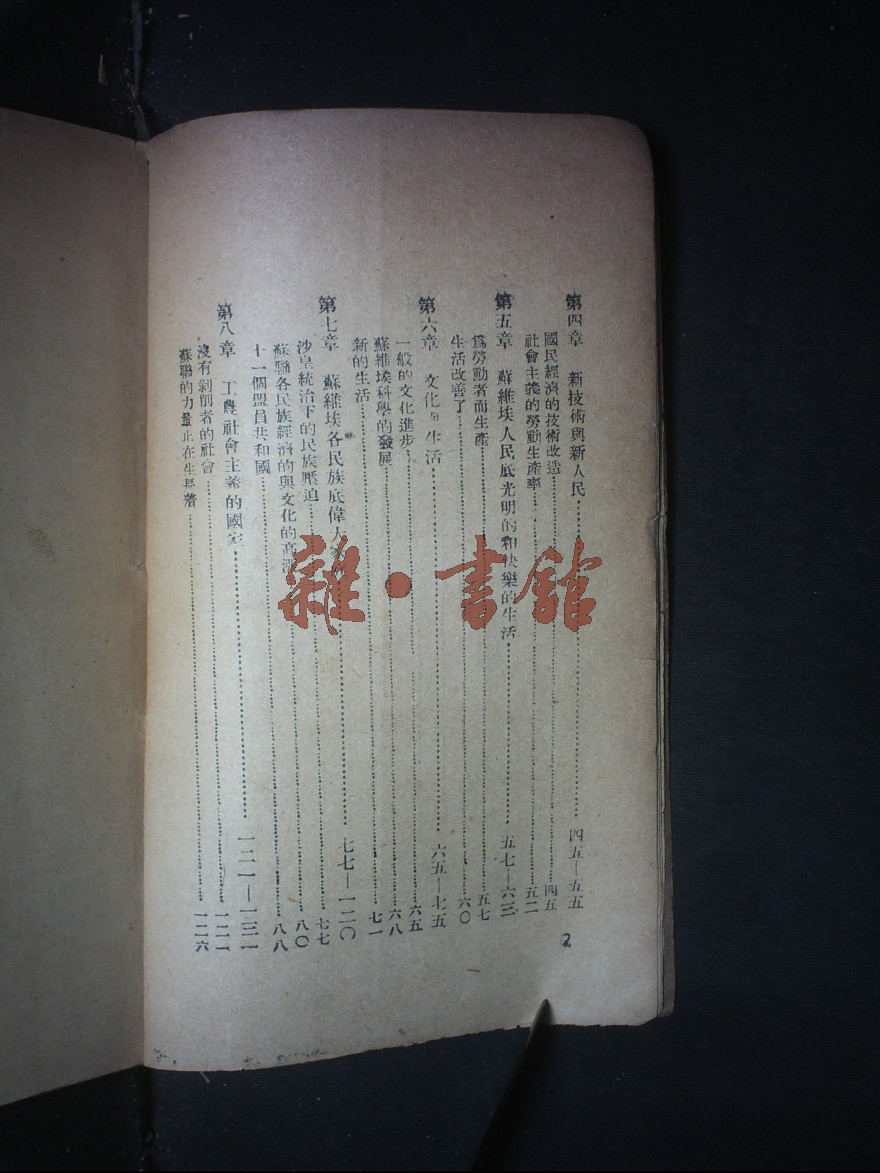 第四章　新技術與新人民…………四五—五五
國民經濟的技術改造…………四五
社會主義的勞動生產率…………五二
第五章　蘇維埃人民底光明的和快樂的生活…………五七—六三
爲勞動者而生產…………五七
生活改善了…………六〇
第六章　文化與生活…………六五—七五
一般的文化進步…………六五
蘇維埃科學的發展…………六八
新的生活…………七一
第七章　蘇維埃各民族底偉大…………七七—一二〇
沙皇統治下的民族壓迫…………七七
蘇聯各民族經濟的與文化的高漲…………八〇
十一個盟員共和國…………八八
第八章　工農社會主義的國家…………一二一—一三一
沒有剝削者的社會…………一二一
蘇聯的力量正在生長着…………一二六
2
雜·書館